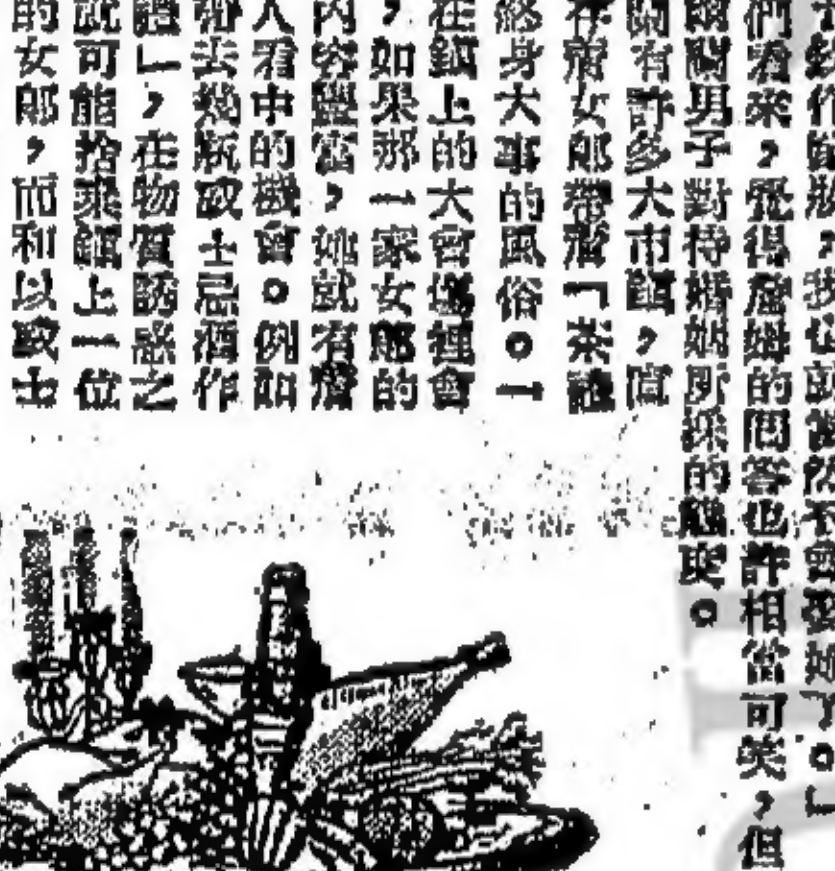 我也就當然不會要她了。」
們看來，覺得虛構的問答也許相當可笑，但
爾蘭男子對待婚姻所採的態度。
蘭有許多大市鎮，宣
存着女郎帶着「茶
終身大事的風俗。一
在鎮上的大會場裡會
，如果那一家女郎的
內容豐富，她就有着
人看中的機會。例如
帶去幾瓶威士忌酒作
體」，在物質誘惑之
就可能捨棄鎮上一位
的女郎，而和以威士